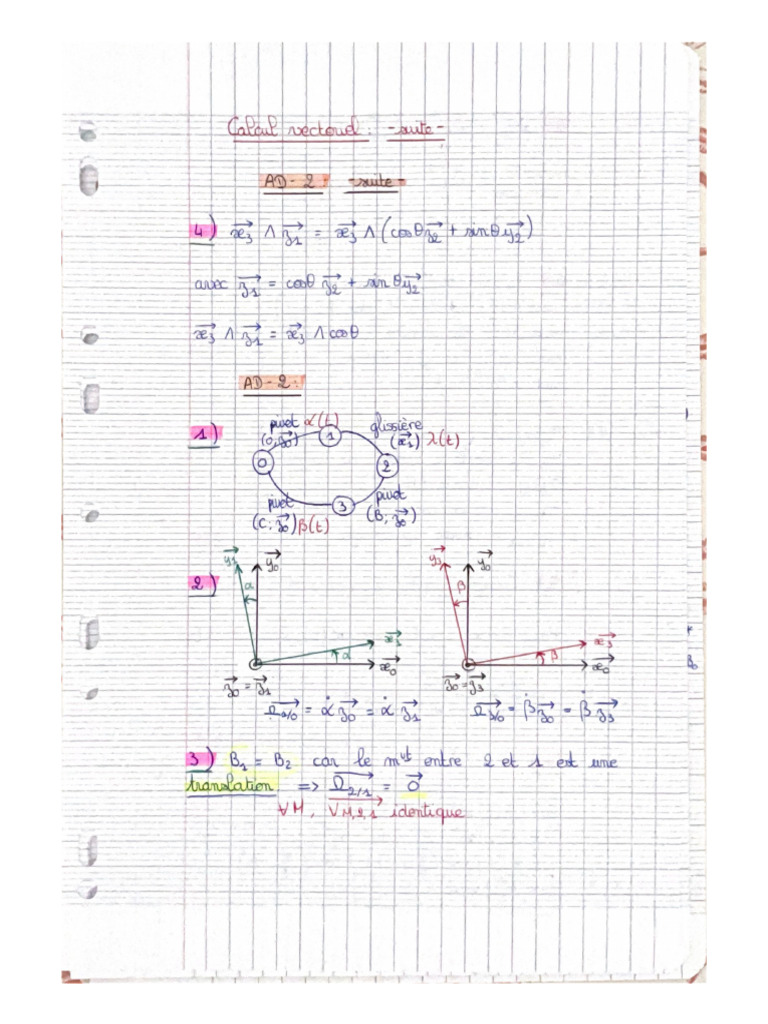 Calcul vectoriel : -suite-
AD-2 : -suite-
4) x₃⃗ ∧ z₁⃗ = x₃⃗ ∧ (cosθ z₂⃗ + sinθ y₂⃗)
avec z₁⃗ = cosθ z₂⃗ + sinθ y₂⃗
x₃⃗ ∧ z₁⃗ = x₃⃗ ∧ cosθ
AD-2 :
1)
pivot α(t)
(0, z₀⃗)
glissière
(x₁⃗) λ(t)
0
1
2
3
pivot
(C; z₀⃗) β(t)
pivot
(B; z₀⃗)
2)
y₁⃗
y₀⃗
α
x₁⃗
α
x₀⃗
z₀⃗ = z₁⃗
y₃⃗
y₀⃗
β
x₃⃗
β
x₀⃗
z₀⃗ = z₃⃗
Ω₁/₀⃗ = α̇ z₀⃗ = α̇ z₁⃗
Ω₃/₀⃗ = β̇ z₀⃗ = β̇ z₃⃗
3) B₁ = B₂ car le mᵛᵗ entre 2 et 1 est une
translation => Ω₂/₁⃗ = 0⃗
∀M, V M,2,1⃗ identique